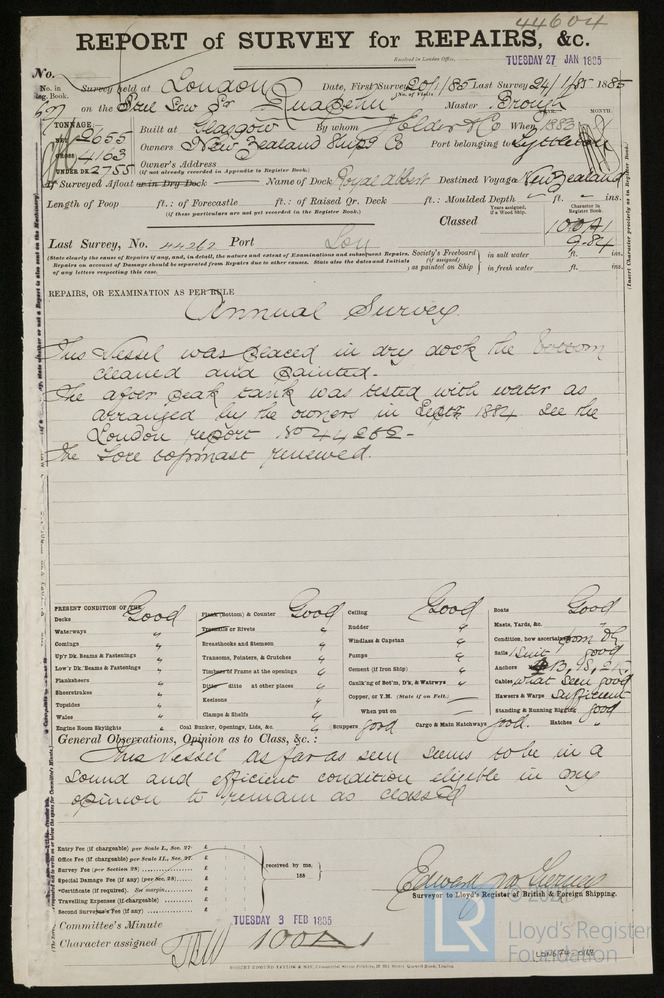 44604
REPORT of SURVEY for REPAIRS, &c.
Received in London Office,
TUESDAY 27 JAN 1885
No.
No. in Reg. Book.
Survey held at London Date, First Survey 20/1/85 Last Survey 24/1/85 1885
(No. of Visits
on the Steel Scw Sr Ruapehu Master Brough
TONNAGE:—
NET 2655
GROSS 4163
UNDER DK 2755
Built at Glasgow By whom J Elder & Co When 1883
YEAR. MONTH.
Owners New Zealand Shipg Co Port belonging to Lyttelton
Owner's Address
(if not already recorded in Appendix to Register Book.)
If Surveyed Afloat or in Dry Dock Name of Dock Royal Albert Destined Voyage New Zealand
Length of Poop ft.: of Forecastle ft.: of Raised Qr. Deck ft.: Moulded Depth ft. ins.
(If these particulars are not yet recorded in the Register Book.)
Years assigned, if a Wood Ship.
Character in Register Book.
Classed 100A1
9.84
(Insert Character precisely as in Register Book.)
Last Survey, No. 44262 Port Lon
(State clearly the cause of Repairs if any, and, in detail, the nature and extent of Examinations and subsequent Repairs.
Repairs on account of Damage should be separated from Repairs due to other causes. State also the dates and Initials of any letters respecting this case.
Society's Freeboard (if assigned) as painted on Ship
in salt water ft. ins.
in fresh water ft. ins.
REPAIRS, OR EXAMINATION AS PER RULE
Annual Survey.
This Vessel was placed in dry dock the bottom
cleaned and painted.
The after peak tank was tested with water as
arranged by the owners in Septr 1884 see the
London report No 44262-
The Fore topmast renewed.
PRESENT CONDITION OF THE
Decks Good
Waterways "
Comings "
Up'r Dk. Beams & Fastenings "
Low'r Dk. Beams & Fastenings "
Planksheers "
Sheerstrakes "
Topsides "
Wales "
Engine Room Skylights "
Plank (Bottom) & Counter Good
Treenails or Rivets "
Breasthooks and Stemson "
Transoms, Pointers, & Crutches "
Timbers of Frame at the openings "
Ditto ditto at other places "
Keelsons "
Clamps & Shelfs "
Coal Bunker, Openings, Lids, &c. "
Ceiling Good
Rudder "
Windlass & Capstan "
Pumps "
Cement (if Iron Ship) "
Caulk'ng of Bot'm, D'k, & Watrwys "
Copper, or Y.M. (State if on Felt.)
When put on
Scuppers good
Cargo & Main Hatchways good.
Boats Good
Masts, Yards, &c. "
Condition, how ascertained from Dk
Sails 1 suit good
Anchors
Cables what seen good
Hawsers & Warps Sufficient
Standing & Running Rigging good
Hatches "
General Observations, Opinion as to Class, &c. :
This Vessel as far as seen seems to be in a
sound and efficient condition eligible in my
opinion to remain as classed
Entry Fee (if chargeable) per Scale I., Sec. 27. £
Office Fee (if chargeable) per Scale II., Sec. 27. £
Survey Fee (per Section 28) £
Special Damage Fee (if any) (per Sec. 28) £
*Certificate (if required). See margin. £
Travelling Expenses (if chargeable) £
Second Surveyor's Fee (if any) £
received by me,
188
Surveyor to Lloyd's Register of British & Foreign Shipping.
Committee's Minute
TUESDAY 3 FEB 1885
Character assigned 100A1
LR
Lloyd's Register Foundation